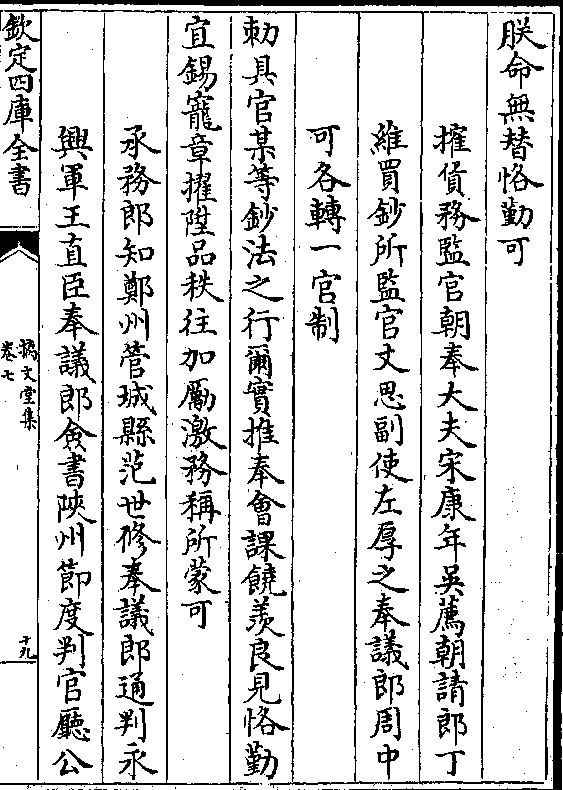 朕命無替恪勤可
搉貨務監官朝奉大夫宋康年吳薦朝請郎丁
維買鈔所監官文思副使左厚之奉議郎周中
可各轉一官制
勅具官某等鈔法之行爾實推奉會課饒羨良見恪勤
宜錫寵章擢陞品秩往加勵激務稱所蒙可
承務郎知鄭州管城縣范世修奉議郎通判永
興軍王直臣奉議郎僉書陜州節度判官廳公
欽定四庫全書
摛文堂集
卷七
十九